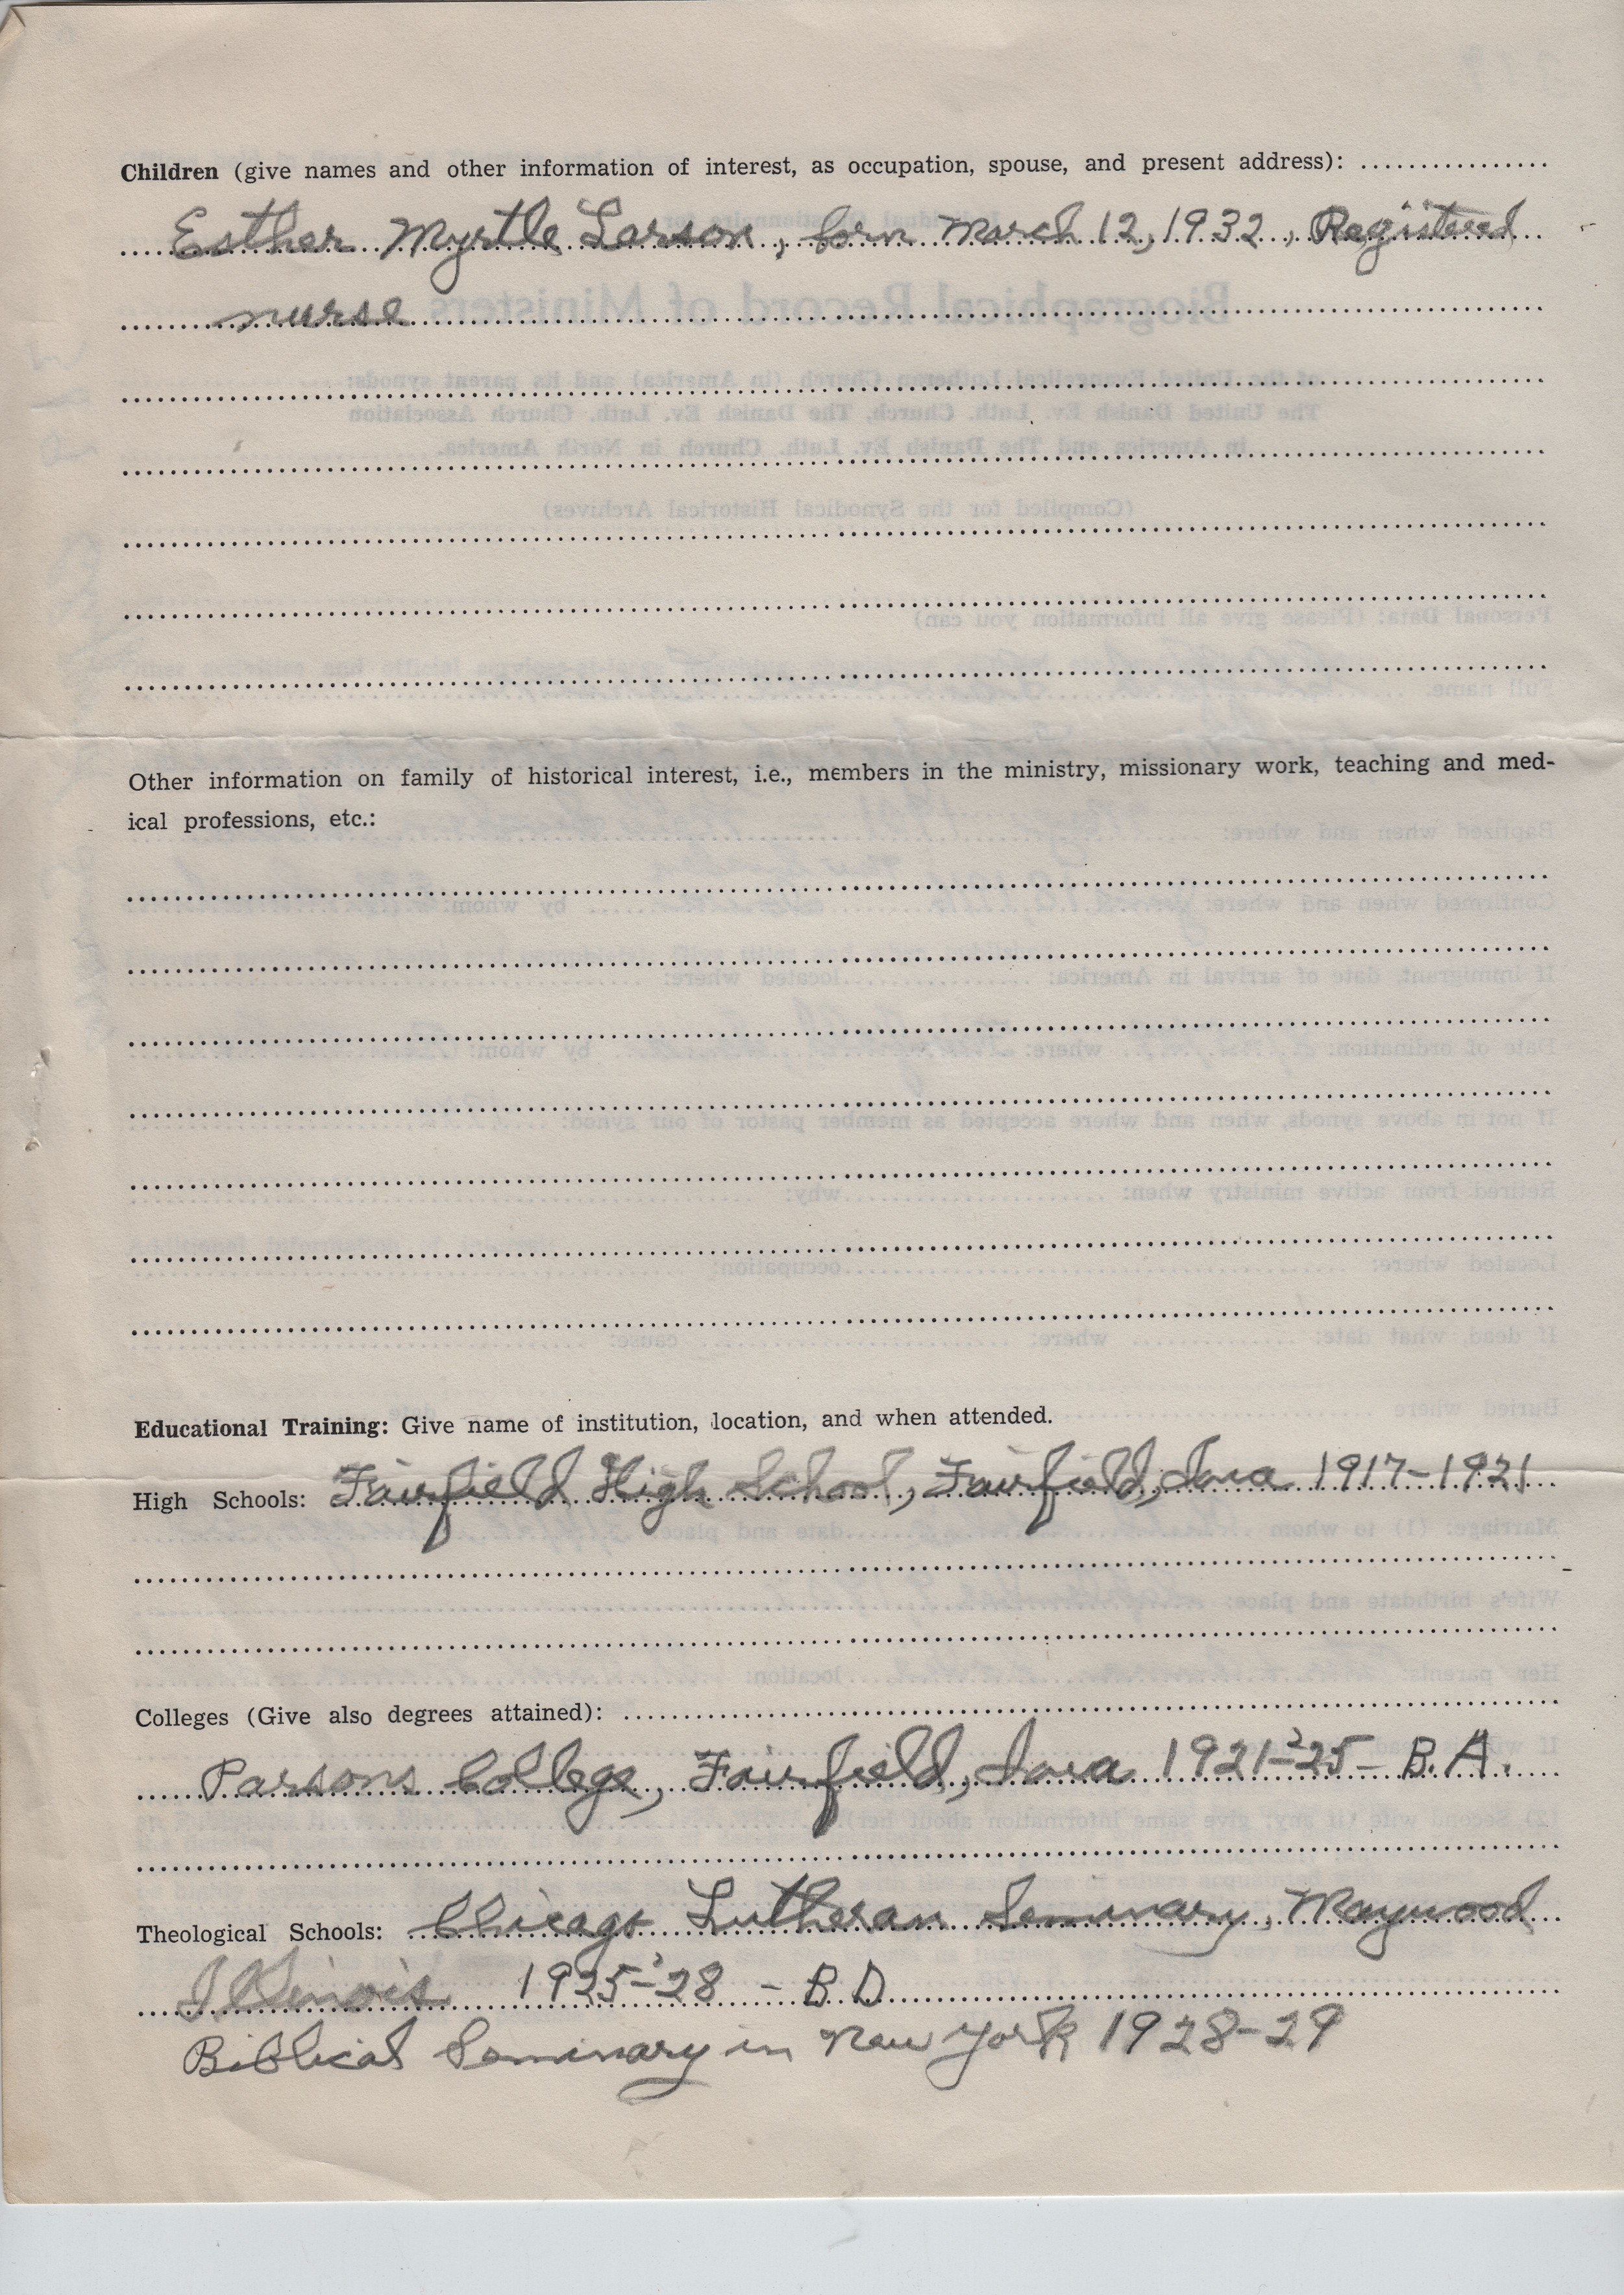 Children (give names and other information of interest, as occupation, spouse, and present address):
Esther Myrtle Larson, born March 12, 1932, Registered
nurse
Other information on family of historical interest, i.e., members in the ministry, missionary work, teaching and med-
ical professions, etc.:
Educational Training: Give name of institution, location, and when attended.
High Schools: Fairfield High School, Fairfield, Iowa 1917-1921
Colleges (Give also degrees attained):
Parsons College, Fairfield, Iowa 1921-'25 - B.A.
Theological Schools: Chicago Lutheran Seminary, Maywood
Illinois 1925-'28 - B D
Biblical Seminary in New York 1928-29